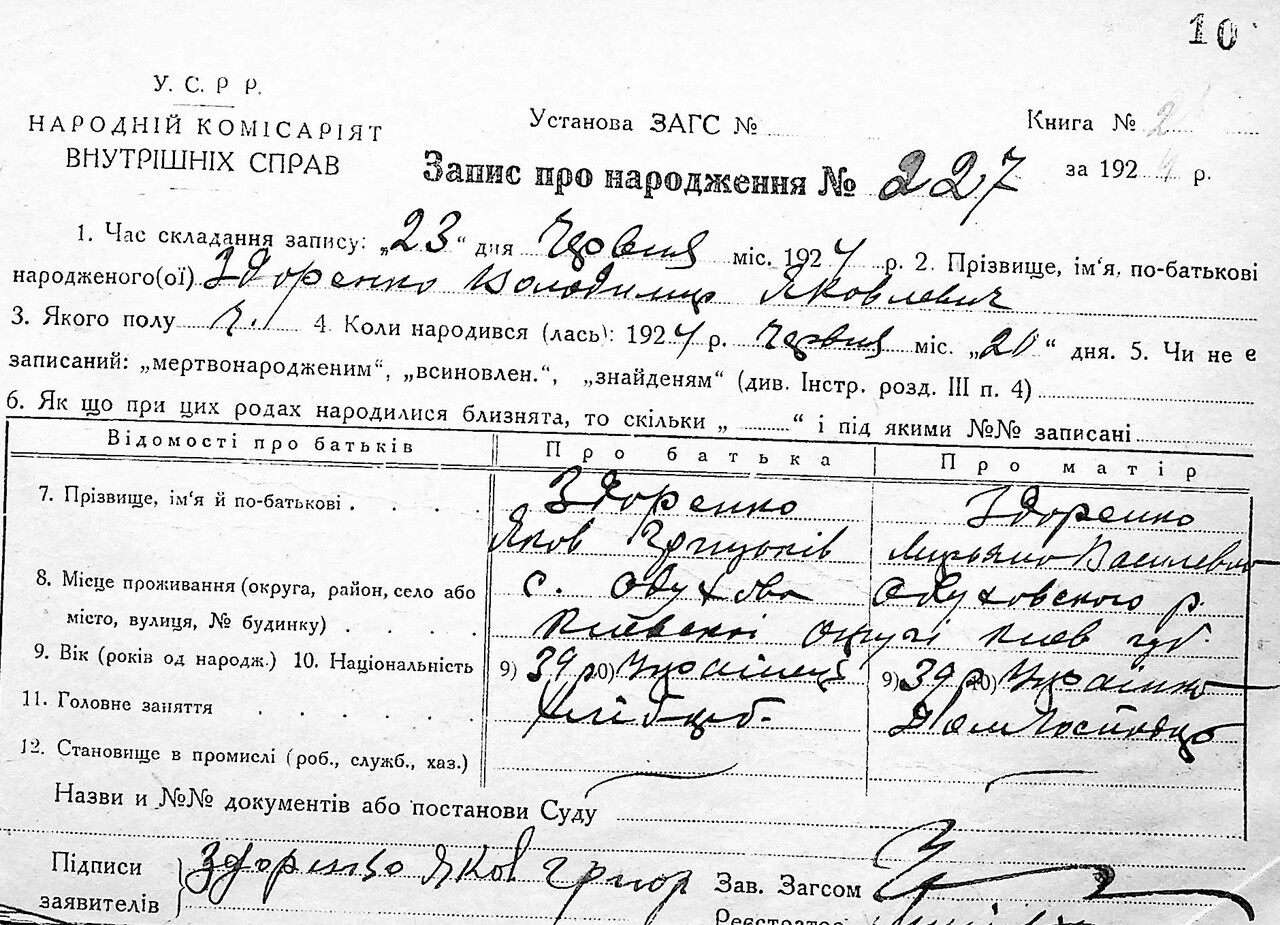 10
У. С. Р Р.
НАРОДНІЙ КОМІСАРІЯТ
ВНУТРІШНІХ СПРАВ
Установа ЗАГС №
Книга № 2
Запис про народження № 227
за 1924 р.
1. Час складання запису: „23“ дня Червня міс. 1924 р. 2. Прізвище, ім'я, по-батькові
народженого(ої) Здоренко Володимир Яковлевич
3. Якого полу ч. 4. Коли народився (лась): 1924 р. Червня міс. „20“ дня. 5. Чи не є
записаний: „мертвонародженим“, „всиновлен.“, „знайденям“ (див. Інстр. розд. III п. 4)
6. Як що при цих родах народилися близнята, то скільки „ “ і під якими №№ записані
Відомості про батьків
Про батька
Про матір
7. Прізвище, ім'я й по-батькові
Здоренко
Здоренко
Яков Грицьків
Василевна
8. Місце проживання (округа, район, село або
с. Обухова
Обуховского р.
місто, вулиця, № будинку)
Київскої округи Киев губ.
9. Вік (років од народж.) 10. Національність
9) 39 р 10) Українець
9) 39 р 10) Українка
11. Головне заняття
Хлібороб.
12. Становище в промислі (роб., служб., хаз.)
Назви и №№ документів або постанови Суду
Підписи
заявителів
Здоренко Яков Григор
Зав. Загсом
Реєстратор